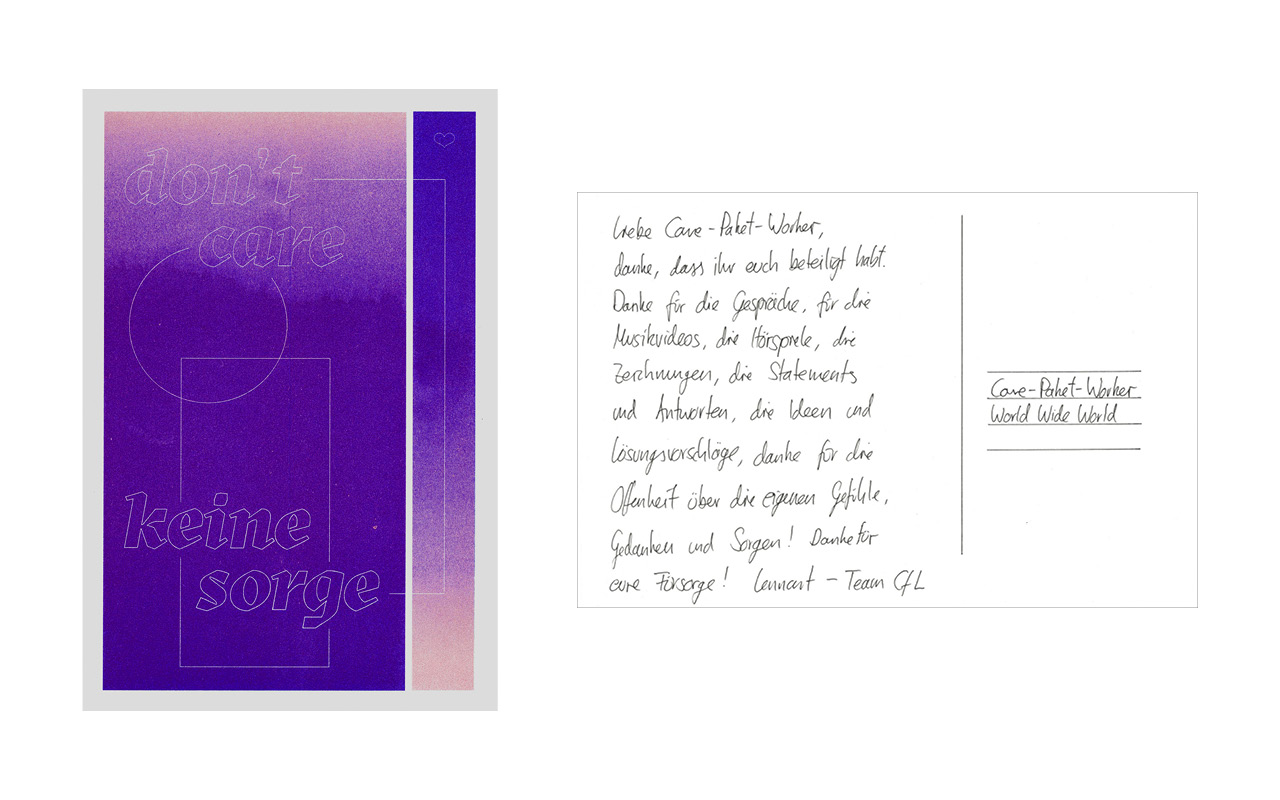 don't
care
keine
sorge
Liebe Care-Paket-Worker,
danke, dass ihr euch beteiligt habt.
Danke für die Gespräche, für die
Musikvideos, die Hörspiele, die
Zeichnungen, die Statements
und Antworten, die Ideen und
Lösungsvorschläge, danke für die
Offenheit über die eigenen Gefühle,
Gedanken und Sorgen! Danke für
eure Fürsorge! Lennart – Team CfL
Care-Paket-Worker
World Wide World